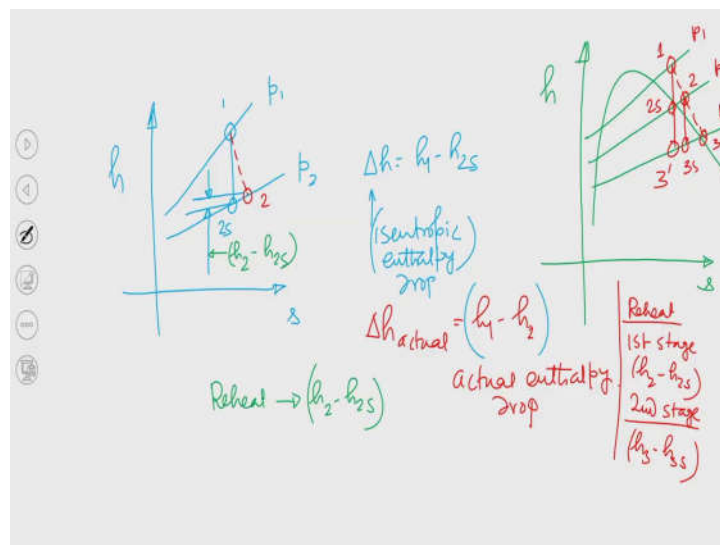 h
1
p1
p2
2
2s
(h2 - h2s)
s
Δh = h1 - h2s
(isentropic
enthalpy
drop
Δh actual = (h1 - h2)
actual enthalpy
drop
Reheat → (h2 - h2s)
h
1
p1
2
p
2s
3s
3
3'
s
Reheat
1st stage
(h2 - h2s)
2nd stage
(h3 - h3s)